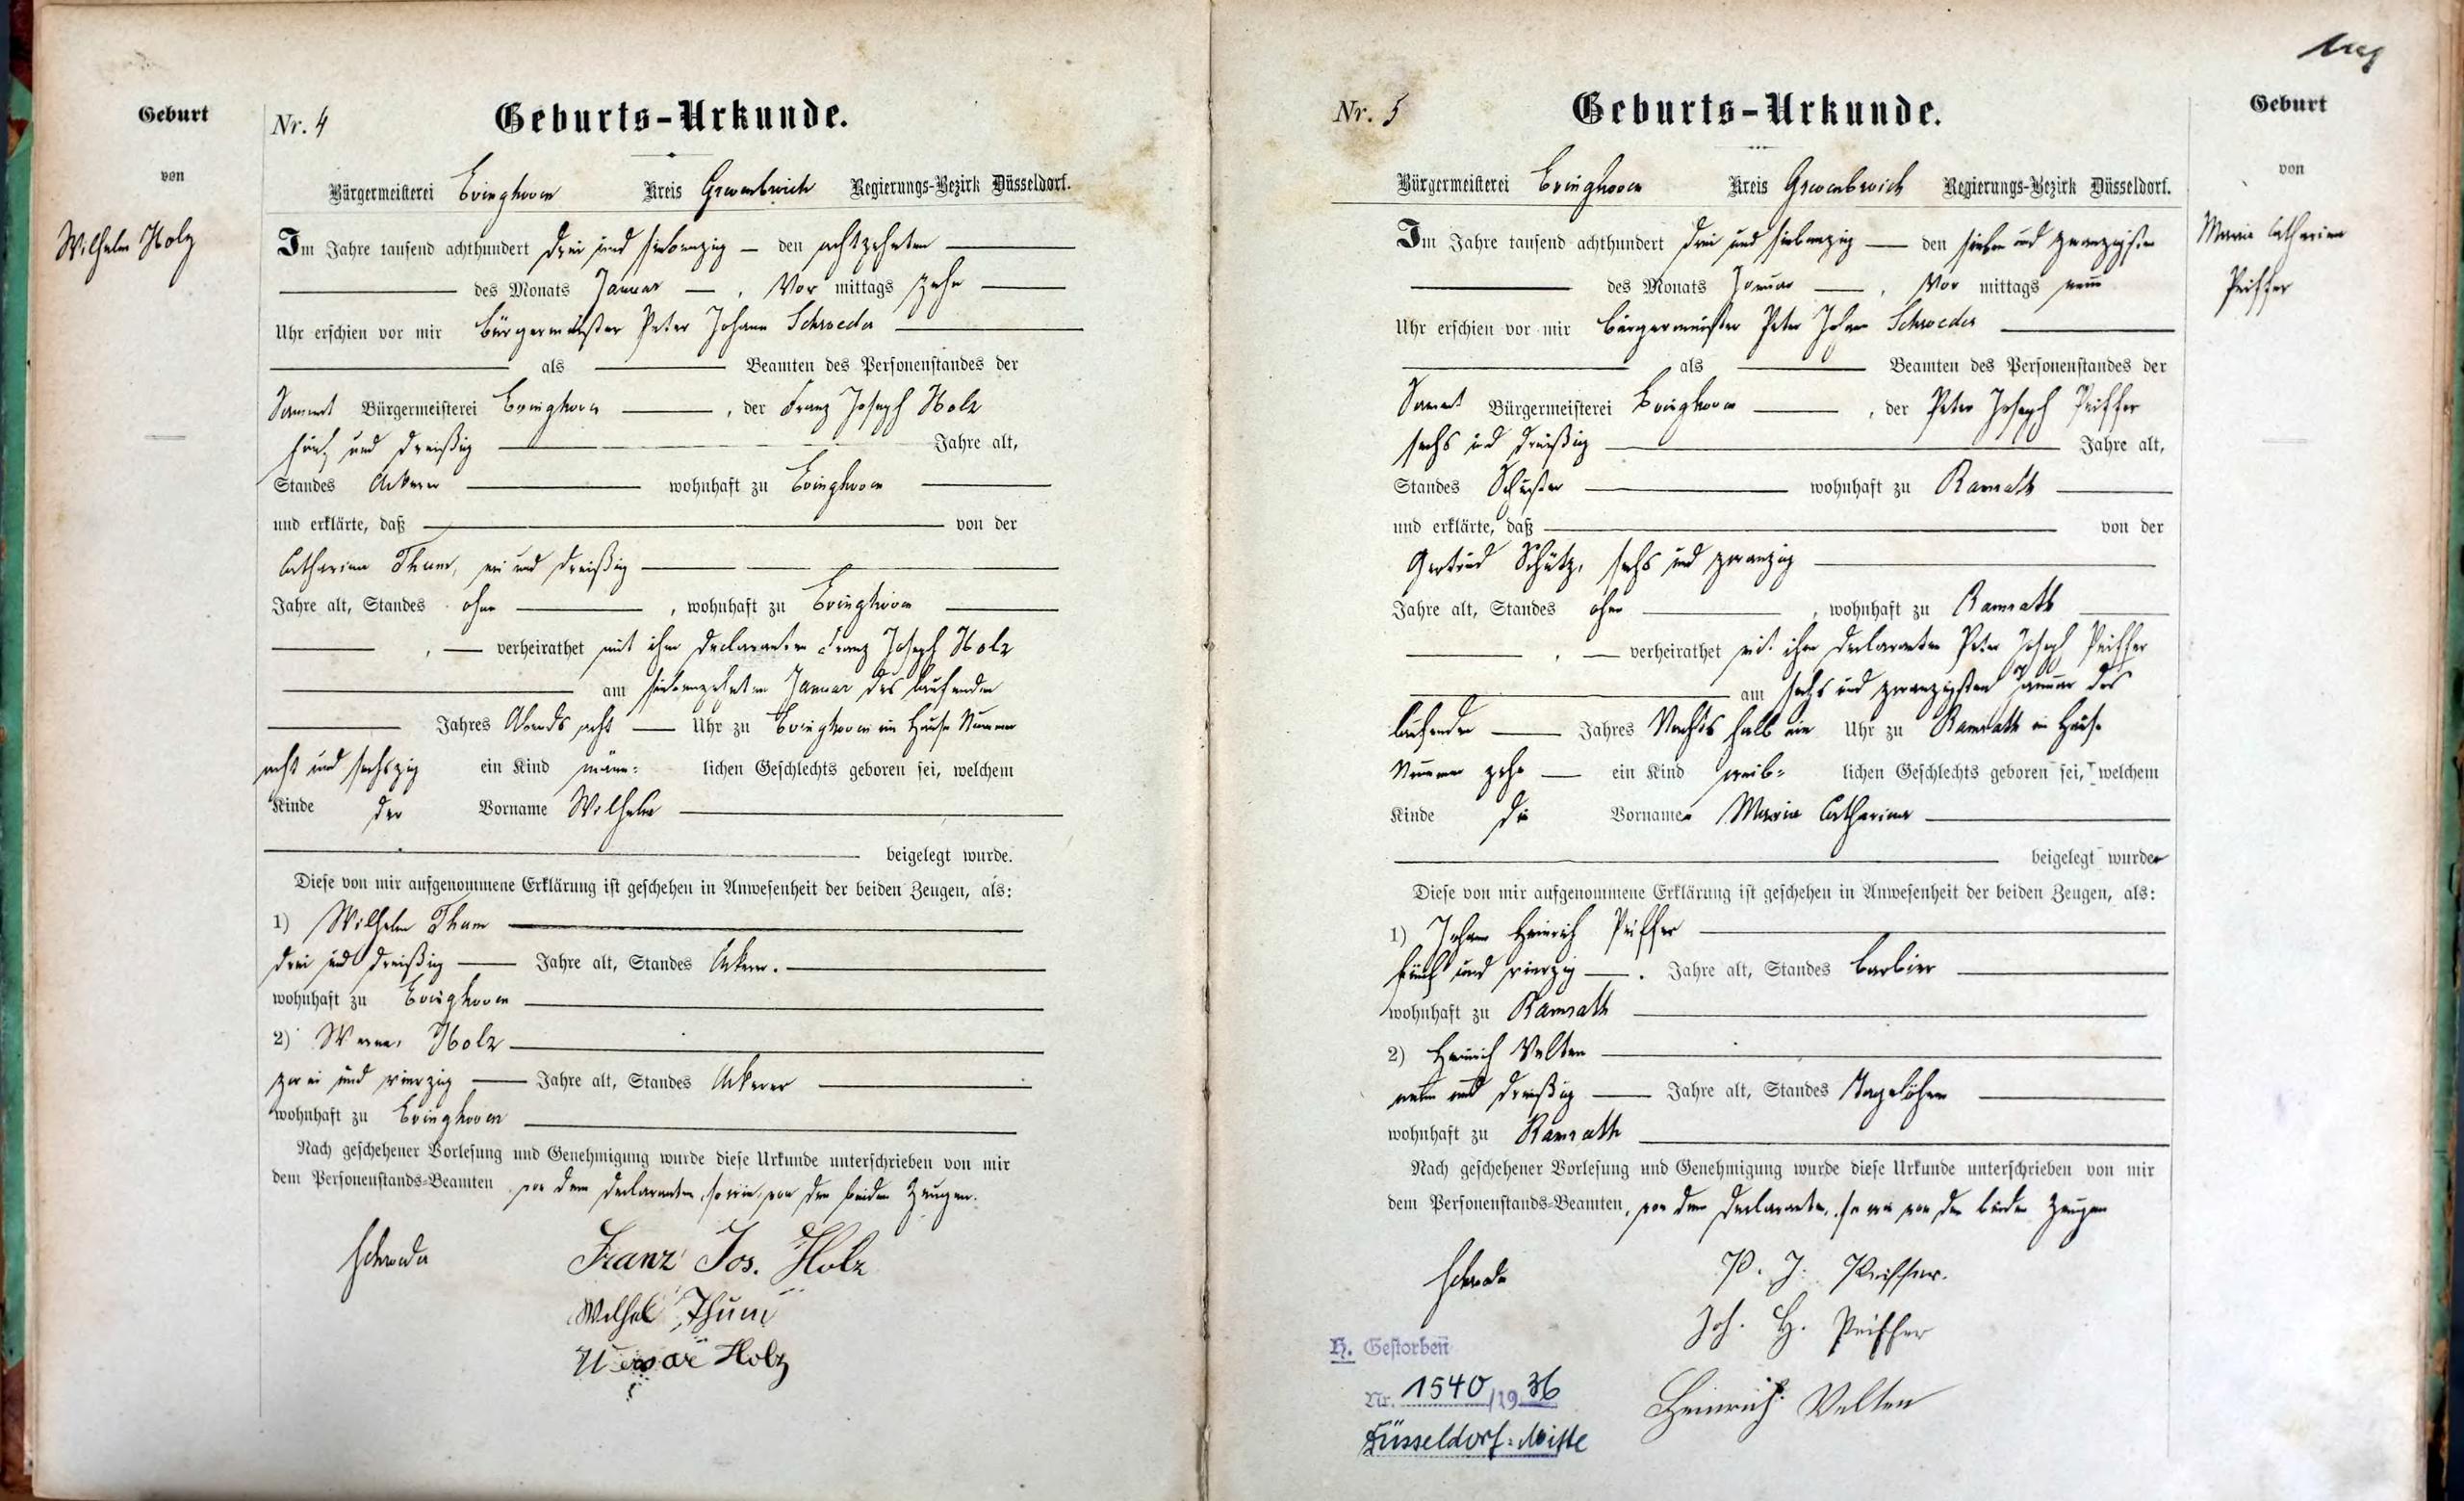 Geburt
von
Wilhelm Holz
Nr. 4
Geburts-Urkunde.
Bürgermeisterei Evinghoven Kreis Grevenbroich Regierungs-Bezirk Düsseldorf.
Im Jahre tausend achthundert drei und siebenzig — den achtzehnten
des Monats Januar —, Vor mittags zehn
Uhr erschien vor mir Bürgermeister Peter Johann Schroeder
als Beamten des Personenstandes der
Sammt Bürgermeisterei Evinghoven, der Franz Joseph Holz
fünf und dreißig Jahre alt,
Standes Ackerer wohnhaft zu Evinghoven
und erklärte, daß von der
Catharina Thum, ein und dreißig
Jahre alt, Standes ohne, wohnhaft zu Evinghoven
, — verheirathet mit ihm Declaranten Franz Joseph Holz
am siebenzehnten Januar des laufenden
Jahres Abends acht — Uhr zu Evinghoven im Hause Nummer
acht und sechszig ein Kind männ= lichen Geschlechts geboren sei, welchem
Kinde der Vorname Wilhelm
beigelegt wurde.
Diese von mir aufgenommene Erklärung ist geschehen in Anwesenheit der beiden Zeugen, als:
1) Wilhelm Thum
drei und dreißig — Jahre alt, Standes Ackerer.
wohnhaft zu Evinghoven
2) Werner Holz
zwei und vierzig — Jahre alt, Standes Ackerer
wohnhaft zu Evinghoven
Nach geschehener Vorlesung und Genehmigung wurde diese Urkunde unterschrieben von mir
dem Personenstands-Beamten, von dem Declaranten, so wie von den beiden Zeugen.
Schroeder
Franz Jos. Holz
Wilhel Thum
Holz
Geburt
von
Maria Catharina
Peiffer
Nr. 5
Geburts-Urkunde.
Bürgermeisterei Evinghoven Kreis Grevenbroich Regierungs-Bezirk Düsseldorf.
Im Jahre tausend achthundert drei und siebenzig — den sieben und zwanzigsten
des Monats Januar —, Vor mittags neun
Uhr erschien vor mir Bürgermeister Peter Johann Schroeder
als Beamten des Personenstandes der
Sammt Bürgermeisterei Evinghoven, der Peter Joseph Peiffer
sechs und dreißig Jahre alt,
Standes Schuster wohnhaft zu Ramrath
und erklärte, daß von der
Gertrud Schütz, sechs und zwanzig
Jahre alt, Standes ohne, wohnhaft zu Ramrath
, — verheirathet mit ihm Declaranten Peter Joseph Peiffer
am sechs und zwanzigsten Januar des
laufenden — Jahres Nachts halb ein Uhr zu Ramrath im Hause
Nummer zehn — ein Kind weib= lichen Geschlechts geboren sei, welchem
Kinde die Vornamen Maria Catharina
beigelegt wurden
Diese von mir aufgenommene Erklärung ist geschehen in Anwesenheit der beiden Zeugen, als:
1) Johann Heinrich Peiffer
fünf und vierzig —. Jahre alt, Standes Barbier
wohnhaft zu Ramrath
2) Heinrich Velten
neun und dreißig — Jahre alt, Standes Tagelöhner
wohnhaft zu Ramrath
Nach geschehener Vorlesung und Genehmigung wurde diese Urkunde unterschrieben von mir
dem Personenstands-Beamten, von dem Declaranten, so wie von den beiden Zeugen
Schroeder
P. J. Peiffer.
Joh. H. Peiffer
Heinrich Velten
H. Gestorben
Nr. 1540/1936
Düsseldorf-Mitte